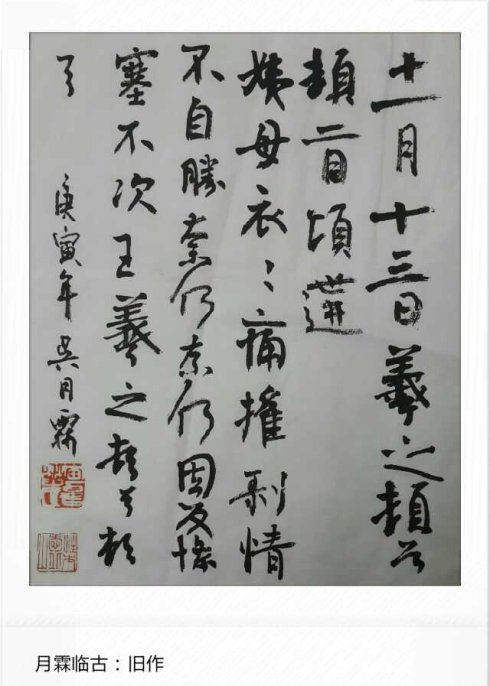 十一月十三日羲之頓首
頓首頃遘
姨母哀〻痛摧剥情
不自勝奈何奈何因反慘
塞不次王羲之頓首頓
首
庚寅年吴月霖
月霖临古：旧作